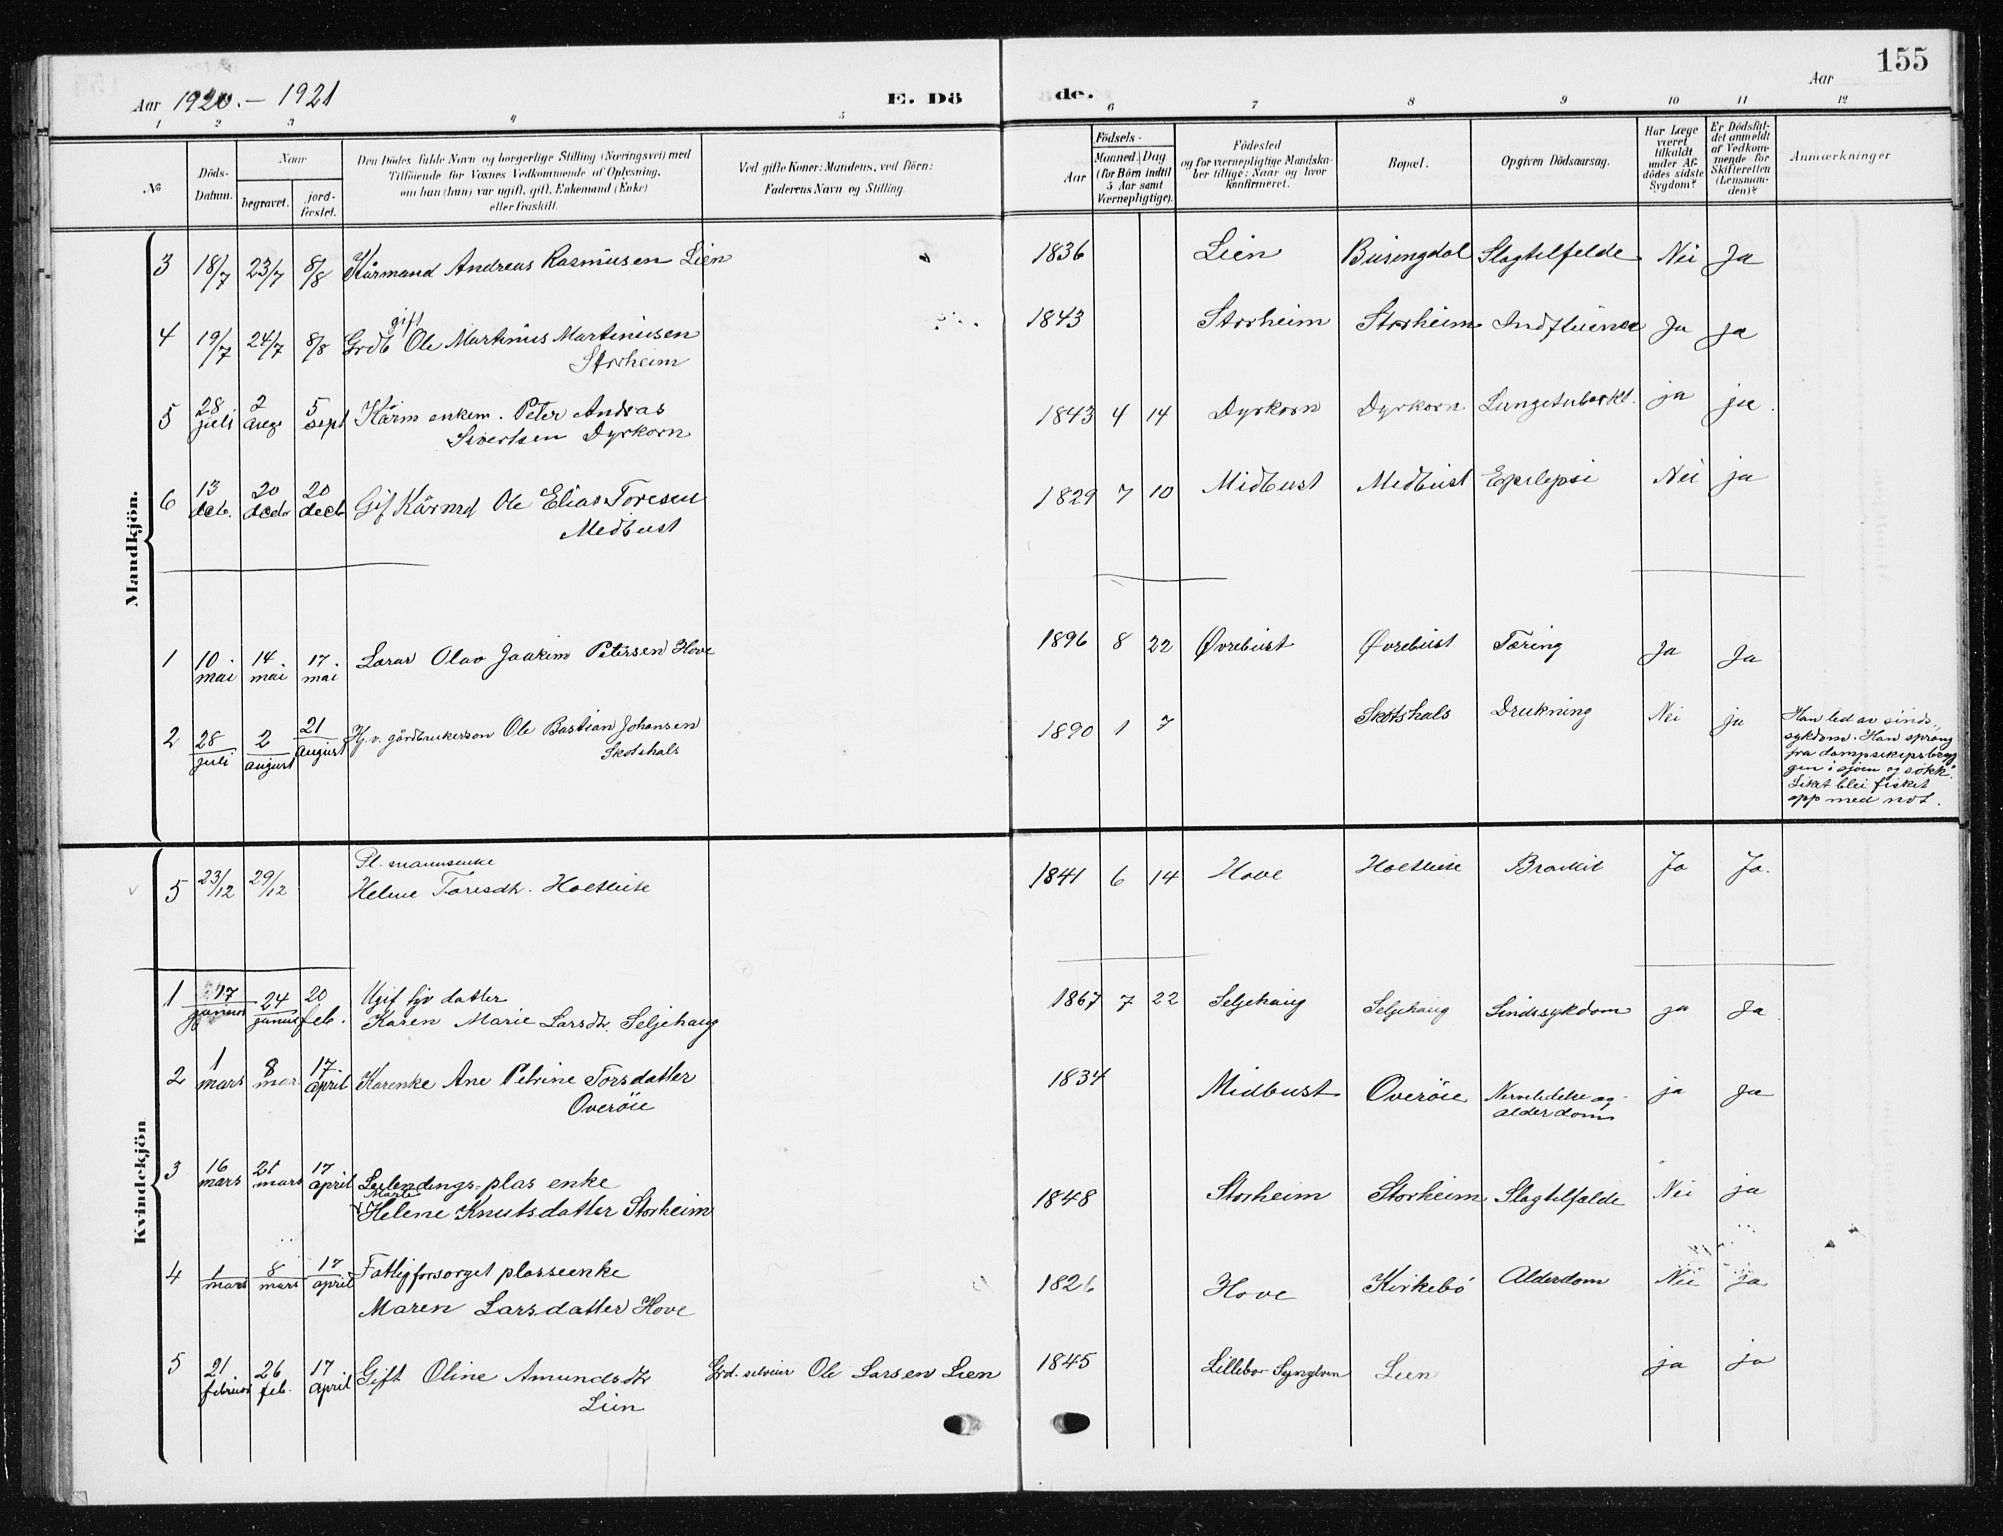 155
Aar 1920. – 1921
E. Dö
de.
Aar
1 2 3 4 5 6 7 8 9 10 11 12
№
Döds-
Datum.
Naar
begravet.
jord-
fæstet.
Den Dödes fulde Navn og borgerlige Stilling (Næringsvei) med
Tilföiende for Voxnes Vedkommende af Oplysning,
om han (hun) var ugift, gift, Enkemand (Enke)
eller fraskilt.
Ved gifte Koner: Mandens, ved Börn:
Faderens Navn og Stilling.
Födsels-
Aar
Maaned. Dag
(for Börn indtil
5 Aar samt
Værnepligtige).
Födested
og for værnepligtige Mandska-
ber tillige: Naar og hvor
konfirmeret.
Bopæl.
Opgiven Dödsaarsag.
Har Læge
været
tilkaldt
under Af-
dödes sidste
Sygdom?
Er Dödsfal-
det anmeldt
af Vedkom-
mende for
Skifteretten
(Lensman-
den)?
Anmærkninger
Mandkjön.
3 18/7 23/7 8/8 Kårmand Andreas Rasmusen Lien 1836 Lien Busengdal Slagtilfelde Nei Ja
gift
4 19/7 24/7 8/8 Grdb Ole Martinus Martinusen 1843 Storheim Storheim Indfluensa Ja ja
Storheim
5 28 juli 2 aug 5 sept Kårm enkem. Peter Andras 1843 4 14 Dyrkorn Dyrkorn Lungetuberkl. ja ja.
Sivertsen Dyrkorn
6 13 deb. 20 decb 20 decb Gif Kårmd Ole Elias Toresen 1829 7 10 Midbust Medbust Epilepsi Nei ja
Medbust
1 10. mai 14. mai 17. mai Olav Joakim Petersen Hove 1896 8 22 Øvrebust Øvrebust Tæring Ja Ja
2 28 juli 2 august 21 august Hj. v. gårdbrukerson Ole Bastian Johansen 1890 1 7 Skotshals Drukning Nei ja
Skotshals
Han led av sinds-
sykdom. Han sprang
fra dampskipsbryg-
gen i sjøen og søkk.
Liket blei fisket
opp med not.
Kvindekjön
Pl. mannsenke
5 23/12 29/12 Helene Toresdtr. Holsteite 1841 6 14 Hove Holsteite Ja Ja.
Ugif hjv datter
1 17 januar 24 januar 20 feb. Karen Marie Larsdtr. Seljehaug 1867 7 22 Seljehaug Seljehaug Sindssykdom ja Ja
2 1 mars 8 mar 17 april Karenke Ane Petrine Torsdatter 1834 Midbust Overöie Nervelidelse og ja Ja
Overöie alderdom
3 16 mars 21 mars 17 april Leilendings-plas enke
Marte
Helene Knutsdatter Storheim 1848 Storheim Storheim Slagtilfælde Nei ja
4 1 mars 8 mars 17 april Fattigforsorget plasseenke
Maren Larsdatter Hove 1826 Hove Kirkebö Alderdom Nei ja
5 21 februar 26 feb. 17 april Gift Oline Amundsdtr Grd. selveier Ole Larsen Lien 1845 Lillebø Synylven Lien ja ja
Lien